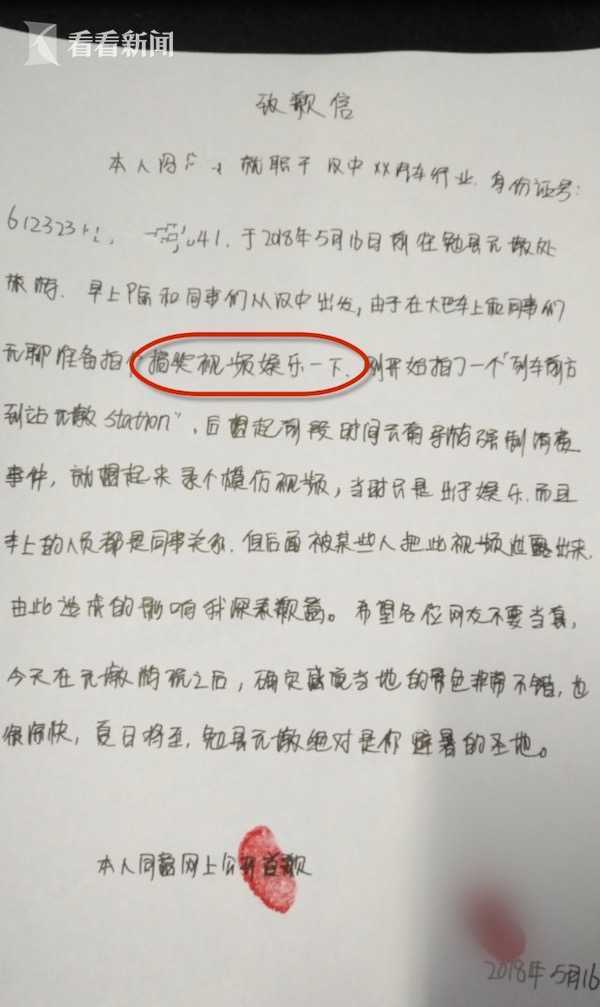 看看新闻
致歉信
本人 就职于汉中XX汽车行业.身份证号:
612323 041.于2018年5月16日前往勉县元墩处
旅游.早上8点和同事们从汉中出发,由于在大巴车上跟同事们
无聊准备拍个搞笑视频娱乐一下.刚开始拍了一个"列车前方
到站元墩station",后想起前段时间云南导游强制消费
事件,就想起来录个模仿视频,当时只是出于娱乐.而且
车上的人员都是同事关系.但后面被某些人把此视频泄露出来.
由此造成的影响我深表歉意。希望各位网友不要当真,
今天在元墩游玩之后,确实感觉当地的景色非常不错,也
很愉快,夏日将至,勉县元墩绝对是你避暑的圣地。
本人同意网上公开道歉
2018年5月16